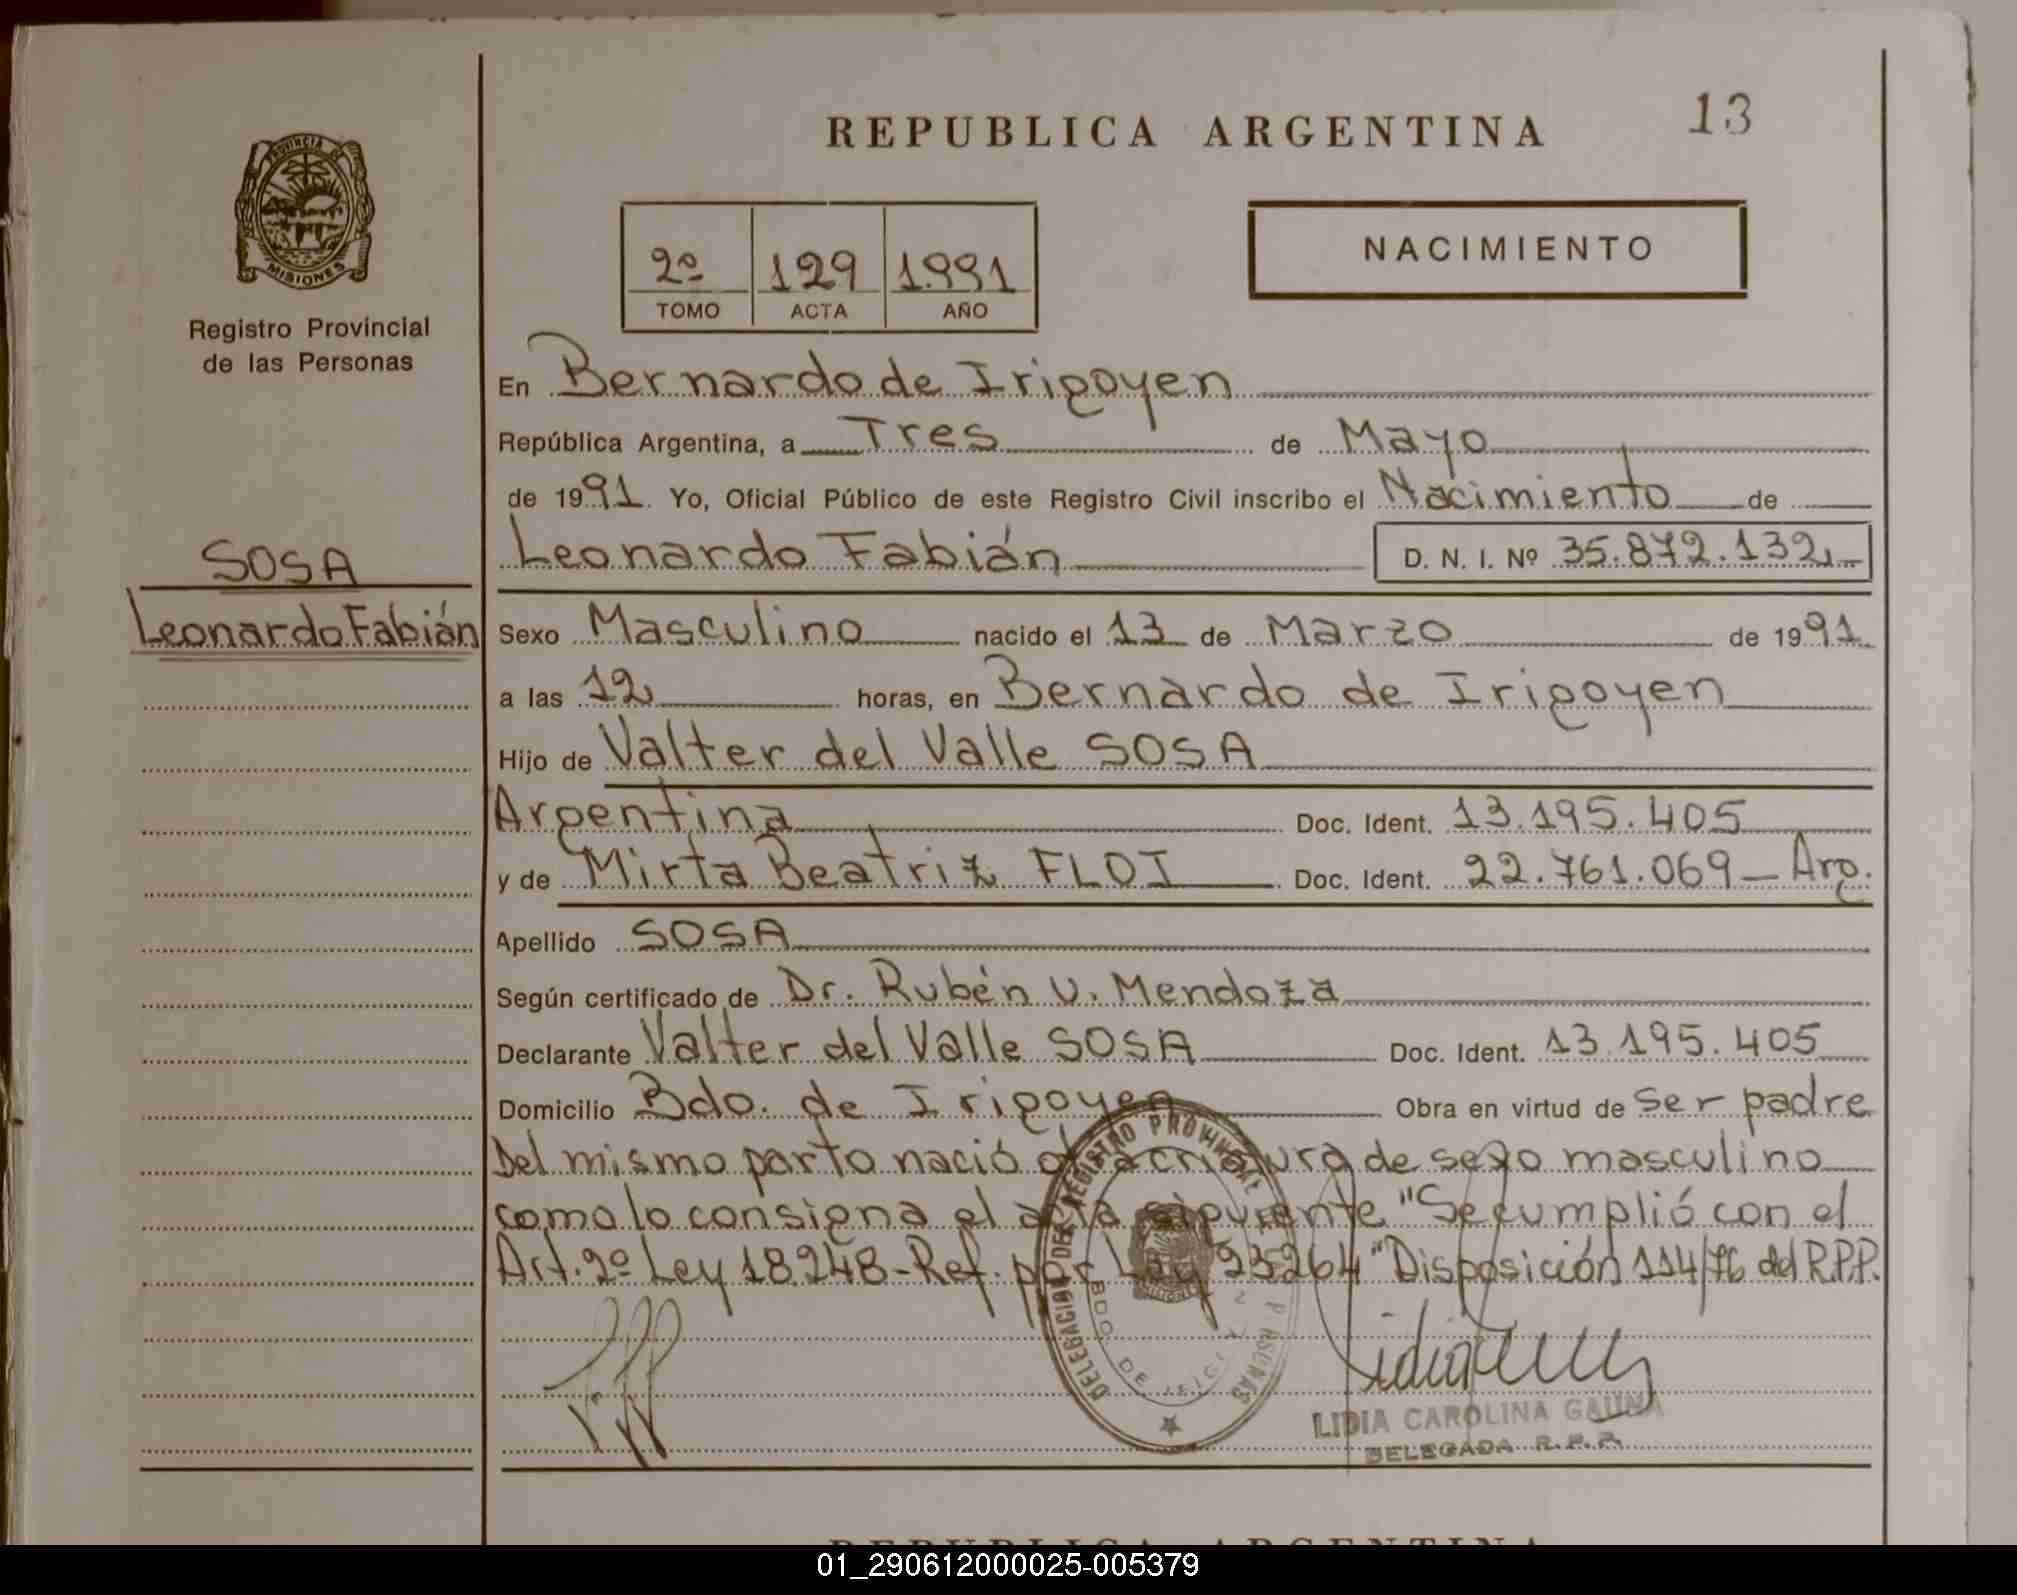 REPUBLICA ARGENTINA
13
PROVINCIA DE
MISIONES
Registro Provincial
de las Personas
2º 129 1.991
TOMO ACTA AÑO
NACIMIENTO
En Bernardo de Irigoyen
República Argentina, a Tres de Mayo
de 1991. Yo, Oficial Público de este Registro Civil inscribo el Nacimiento de
Leonardo Fabián D. N. I. Nº 35.872.132
SOSA
Leonardo Fabián
Sexo Masculino nacido el 13 de Marzo de 1991
a las 12 horas, en Bernardo de Irigoyen
Hijo de Valter del Valle SOSA
Argentina Doc. Ident. 13.195.405
y de Mirta Beatriz FLOI Doc. Ident. 22.761.069 - Arg.
Apellido SOSA
Según certificado de Dr. Rubén U. Mendoza
Declarante Valter del Valle SOSA Doc. Ident. 13.195.405
Domicilio Bdo. de Irigoyen Obra en virtud de Ser padre
Del mismo parto nació criatura de sexo masculino
como lo consigna el acta siguiente "Se cumplió con el
Art. 2º Ley 18248-Ref. por Ley 23264" Disposición 114/76 del R.P.P.
DELEGACION DEL REGISTRO PROVINCIAL
BDO. DE
LIDIA CAROLINA GAUNA
DELEGADA R.P.P.
REPUBLICA ARGENTINA
01_290612000025-005379